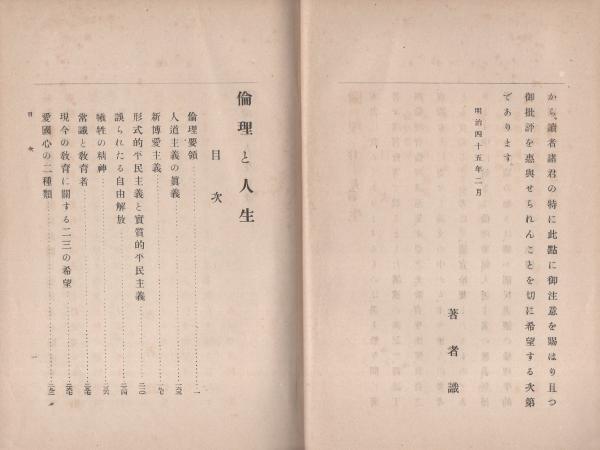 から、讀者諸君の特に此點に御注意を賜はり且つ
御批評を惠與せられんことを切に希望する次第
であります。
明治四十五年二月
著者識
倫理と人生
目次
倫理要領
人道主義の眞義
新博愛主義
形式的平民主義と實質的平民主義
誤られたる自由解放
犠牲の精神
常識と敎育者
現今の敎育に關する二三の希望
愛國心の二種類
目次
一